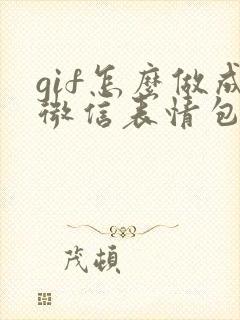 gif怎麼做成
微信表情包
茂頓